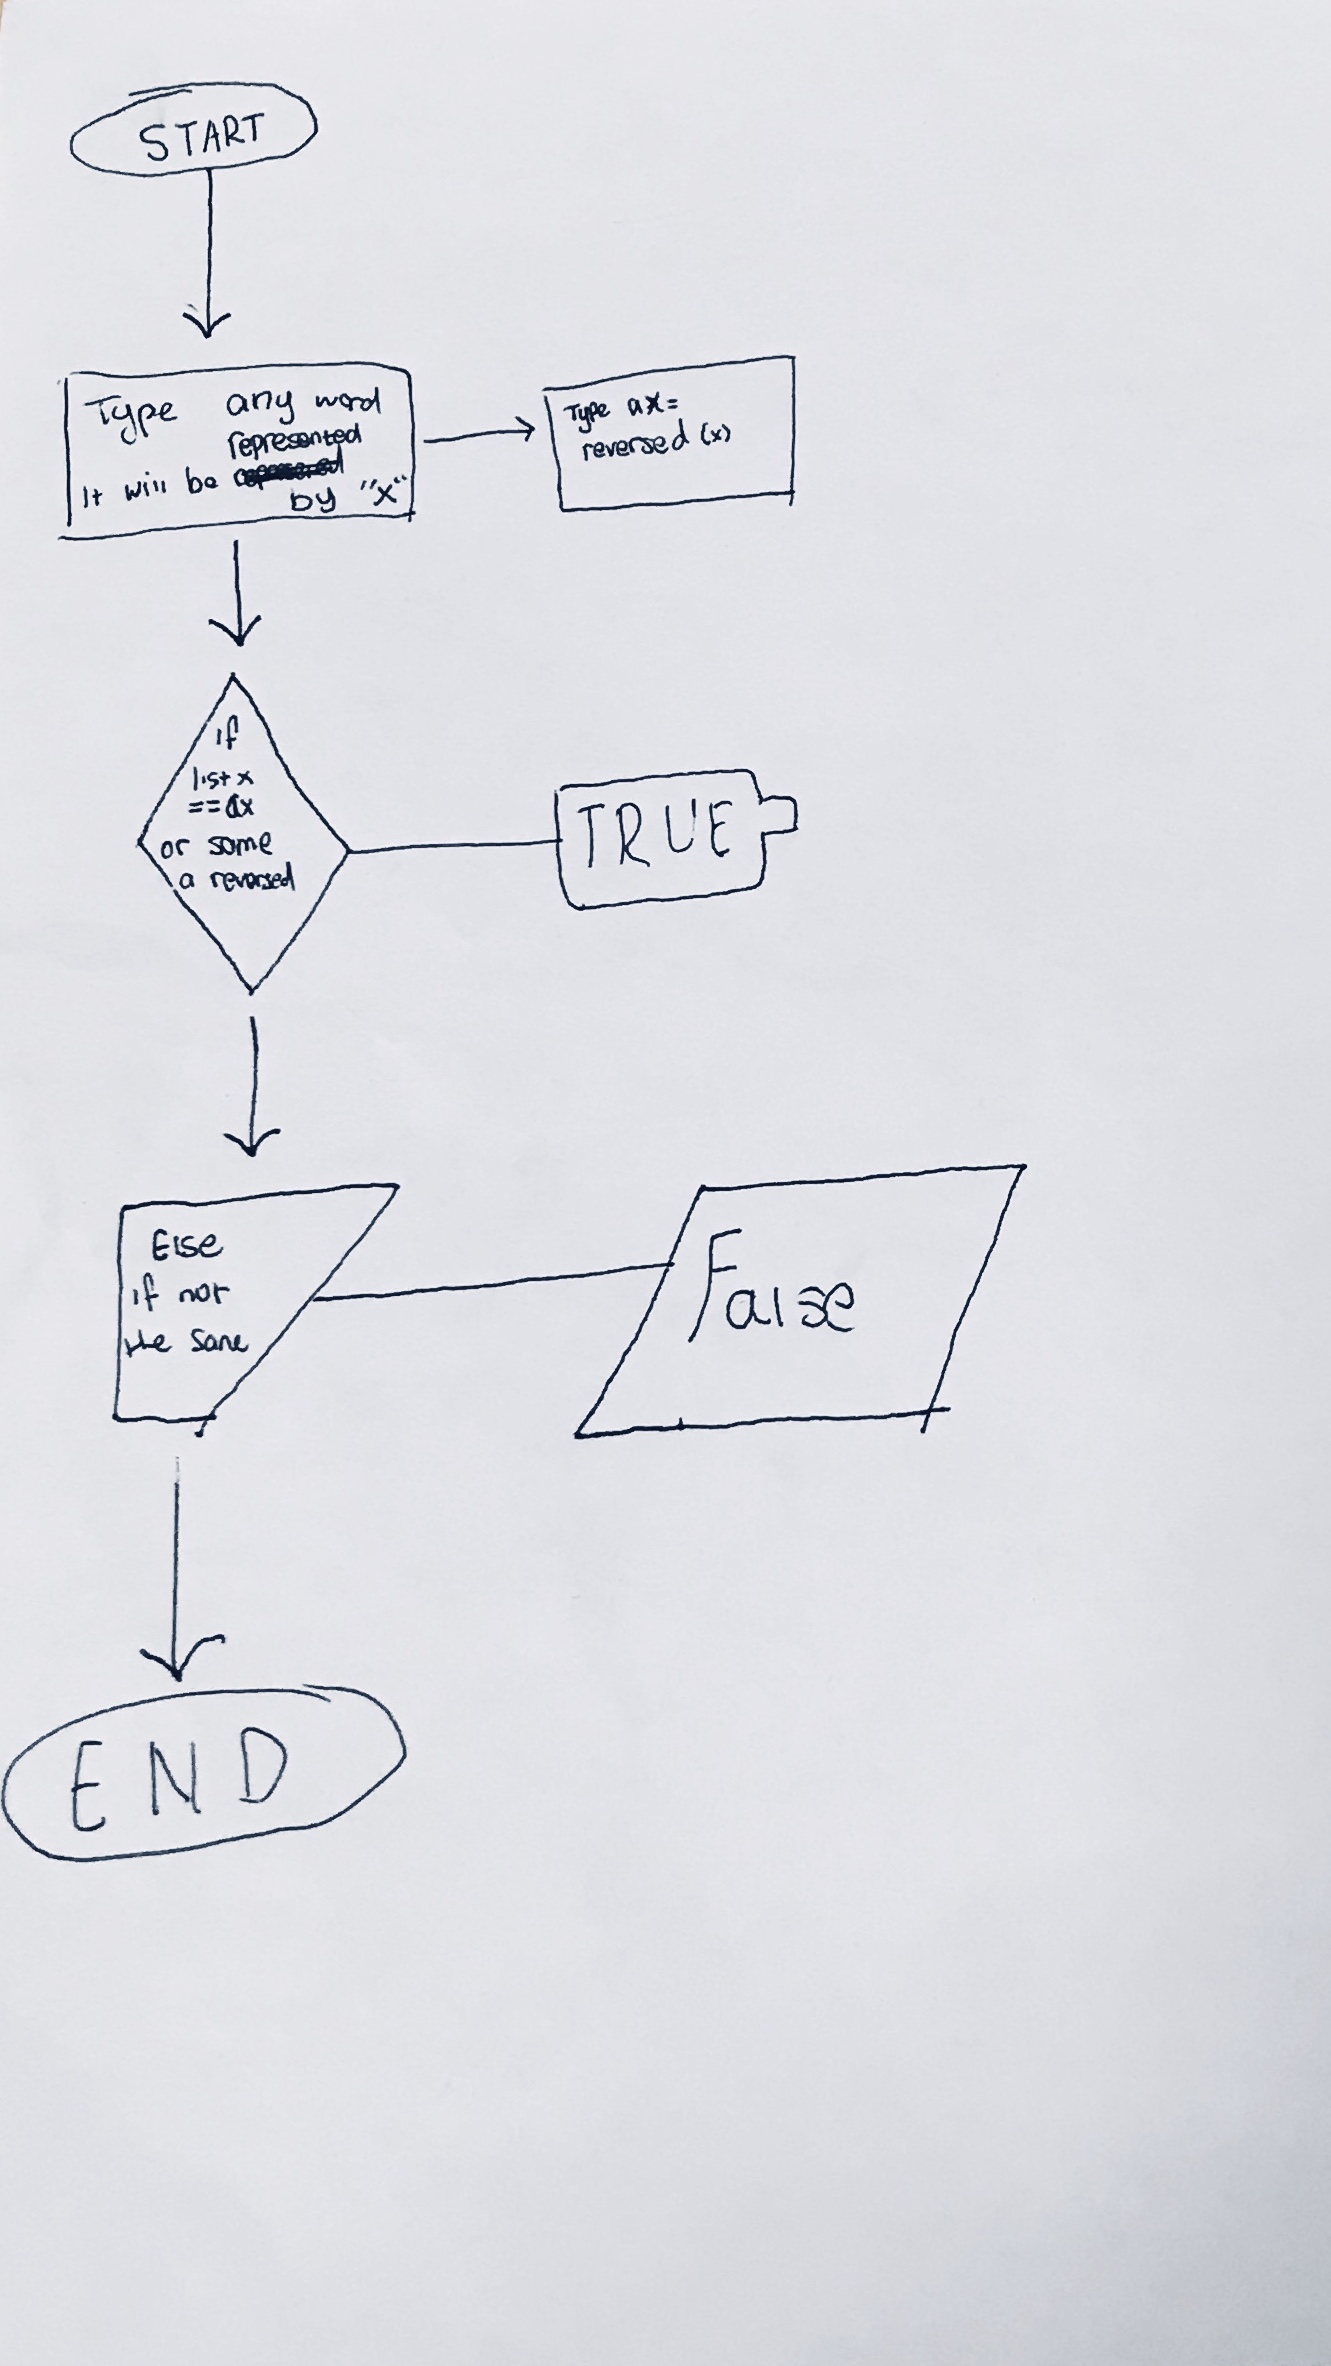 START
Type any word
represented
It will be
by "x"
Type ax=
reversed (x)
if
list x
==ax
or same
a reversed
TRUE
Else
if not
the same
False
END